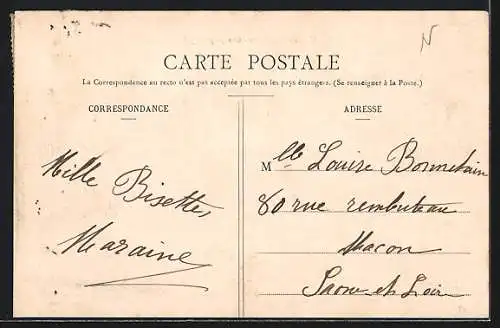 N
CARTE POSTALE
La Correspondance au recto n'est pas acceptée par tous les pays étrangers. (Se renseigner à la Poste.)
CORRESPONDANCE
Mille Bisettes
Maraine
ADRESSE
Mlle Louise Bonnetain
80 rue rembuteau
Macon
Saone et Loir